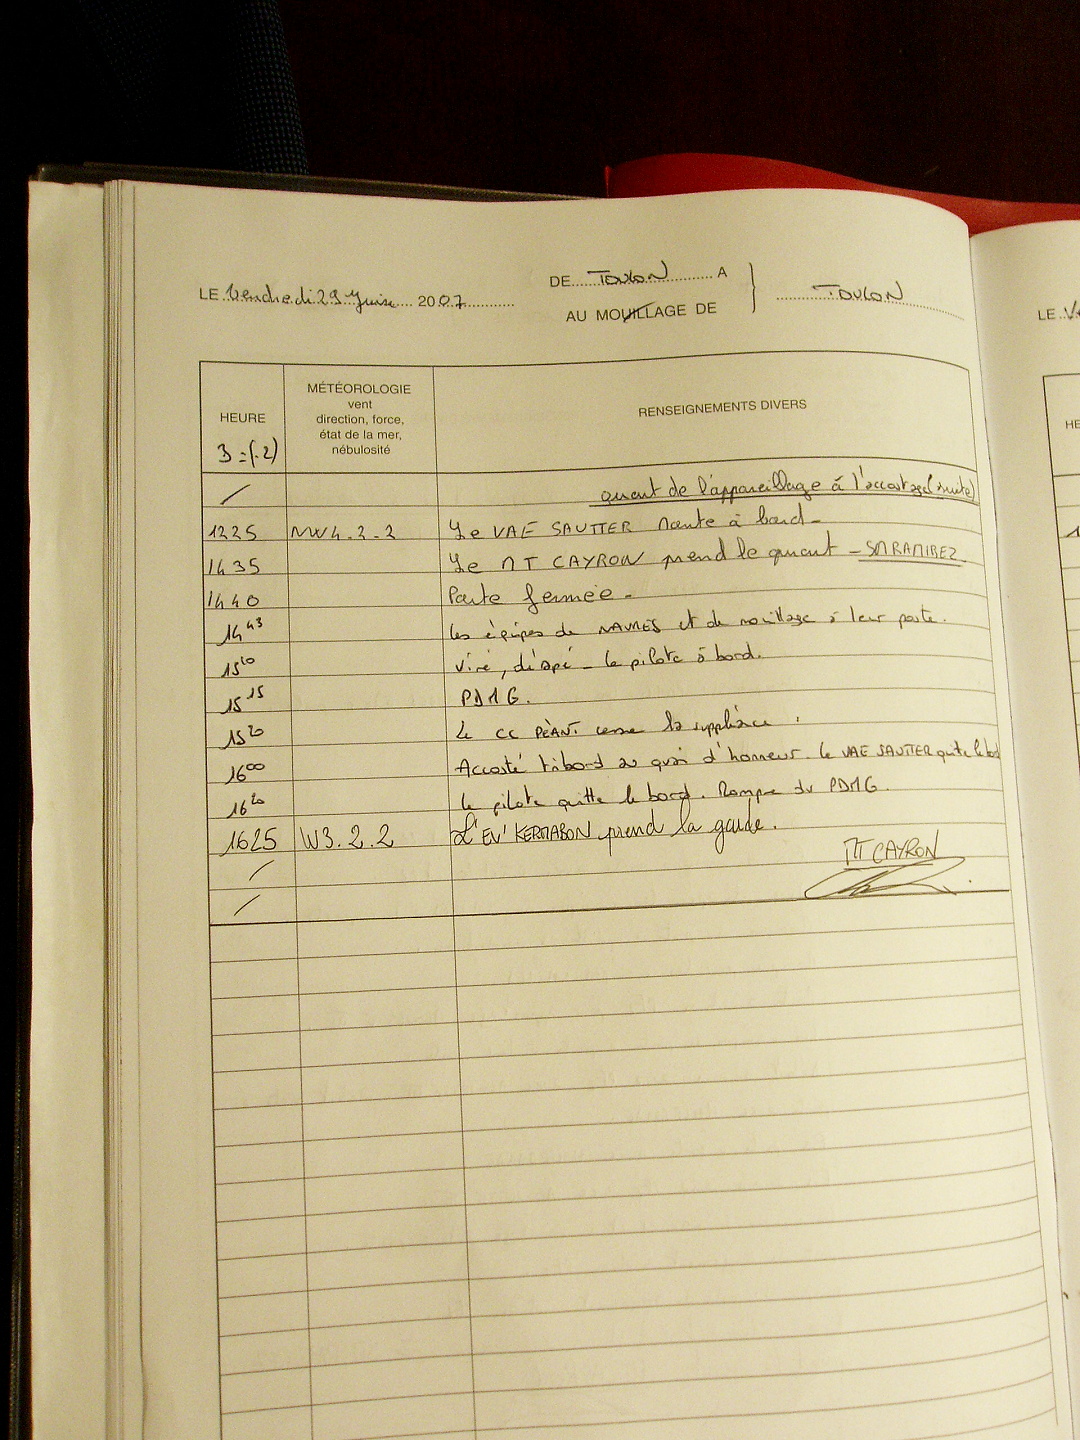 LE Vendredi 29 Juin 2007
DE TOULON A
AU MOUILLAGE DE
TOULON
LE
HEURE
3 = (-2)
MÉTÉOROLOGIE
vent
direction, force,
état de la mer,
nébulosité
RENSEIGNEMENTS DIVERS
HE
/ quart de l'appareillage à l'accostage (suite)
1225 NW4.2.2 Le VAE SAUTTER monte à bord -
1435 Le MT CAYRON prend le quart - SM RAMIREZ
1440 Porte fermée -
14 43 les équipes de et de mouillage à leur poste.
15 10 Viré, dérapé - le pilote à bord.
15 15 PDMG.
15 20 Le CC PÈANT cesse la suppléance.
16 00 Accosté tribord au quai d'honneur. Le VAE SAUTTER quitte le bord
16 20 le pilote quitte le bord. Rompre du PDMG.
1625 W3.2.2 L'EV1 KERMABON prend la garde.
/ MT CAYRON
/